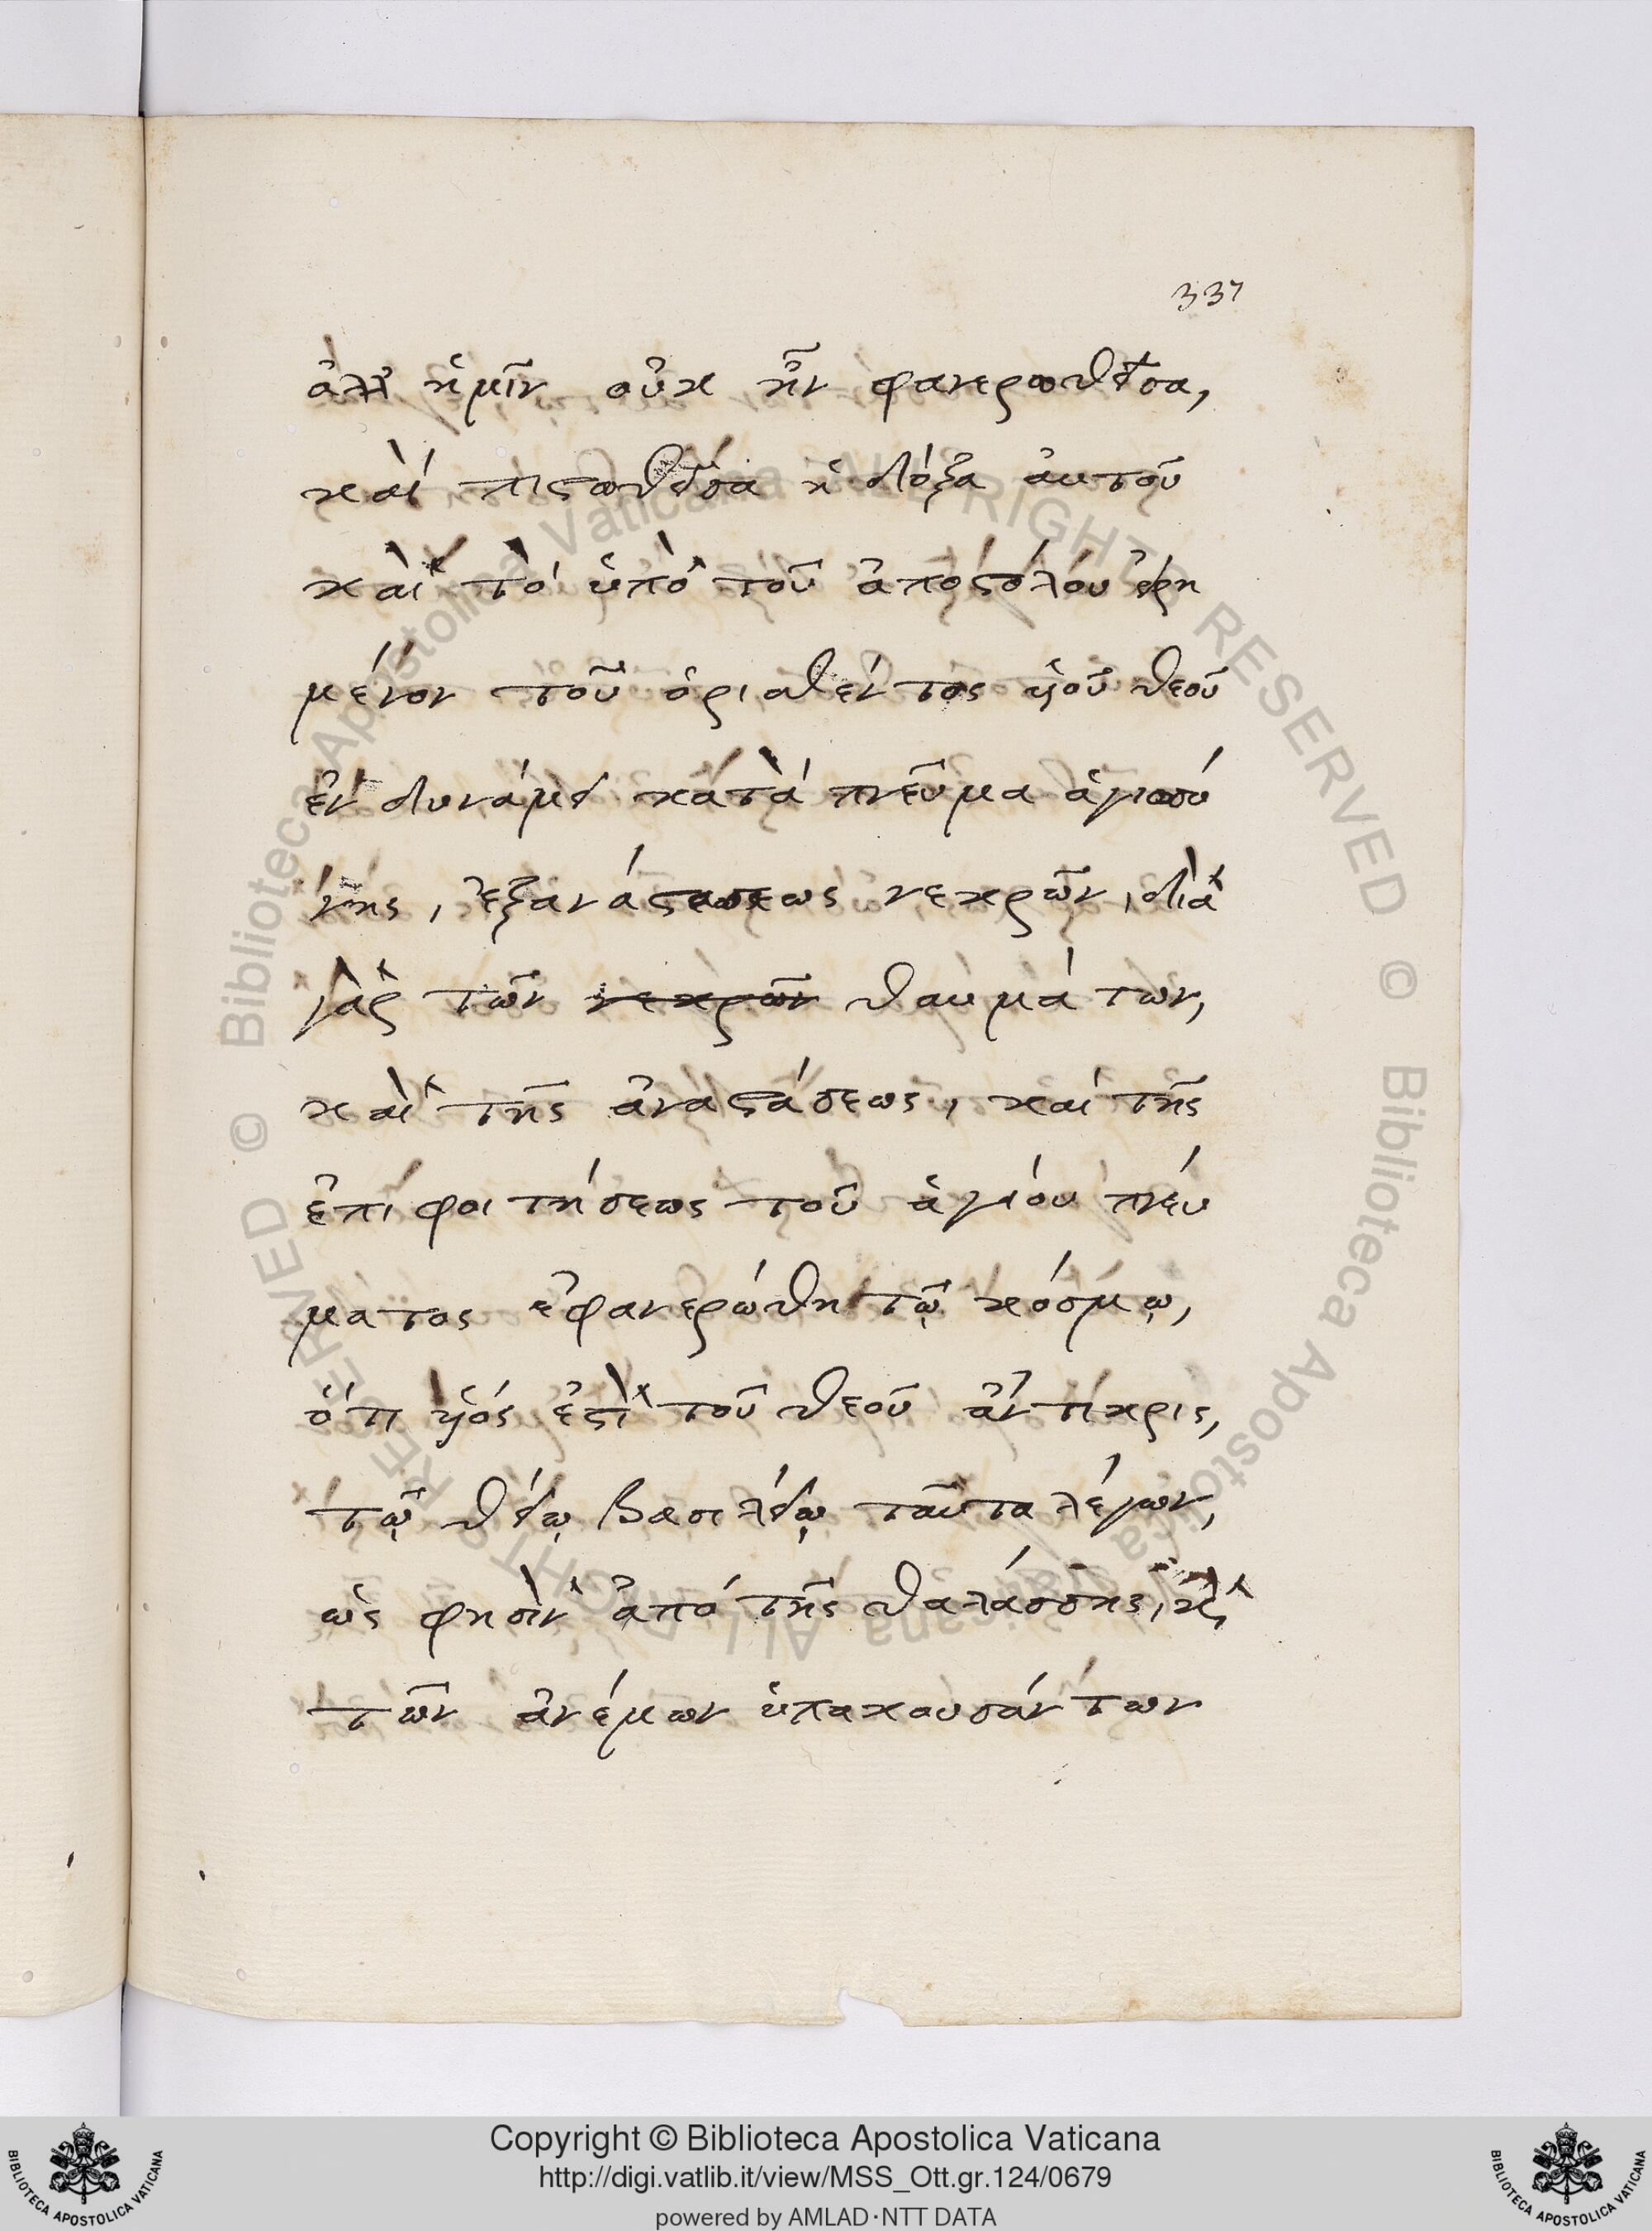 337
ἀλλ' ἡμῖν οὐκ ἦν φανερωθεῖσα,
καὶ πιστωθεῖσα ἡ δόξα αὐτοῦ
καὶ τὸ ὑπὸ τοῦ ἀποστόλου εἰρη
μένον τοῦ ὁρισθέντος υἱοῦ θεοῦ
ἐν δυνάμει κατὰ πνεῦμα ἁγιοσύ
νης, ἐξαναστασεως νεκρῶν, διὰ
γὰρ τῶν νεκρῶν θαυμάτων,
καὶ τῆς ἀναστάσεως, καὶ τῆς
ἐπιφοιτήσεως τοῦ ἁγίου πνεύ
ματος ἐφανερώθη τῷ κόσμῳ,
ὅτι υἱός ἐστὶ τοῦ θεοῦ ἀντίκρις,
τῷ θείῳ βασιλείῳ ταῦτα λέγων,
ὡς φησὶν ἀπὸ τῆς θαλάσσης, κὶ
τῶν ἀνέμων ὑπακουσάντων
Copyright © Biblioteca Apostolica Vaticana
http://digi.vatlib.it/view/MSS_Ott.gr.124/0679
powered by AMLAD·NTT DATA
BIBLIOTECA APOSTOLICA VATICANA
BIBLIOTECA APOSTOLICA VATICANA
© Biblioteca Apostolica Vaticana ALL RIGHTS RESERVED © Biblioteca Apostolica Vaticana ALL RIGHTS RESERVED